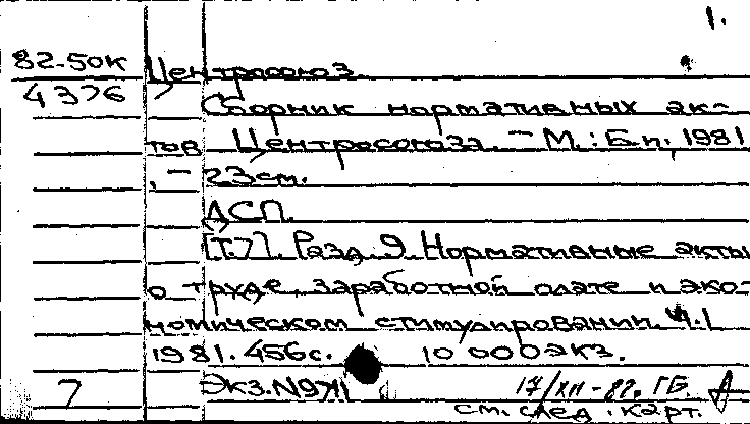 1.
82-50к Центросоюз.
4376 Сборник нормативных ак-
тов Центросоюза. – М.: Б.и., 1981
. – 23см.
ДСП.
[Т.7]. Разд. 9. Нормативные акты
о труде, заработной плате и эко-
номическом стимулировании. Ч.1
1981. 456с. 10 000экз.
7 Экз.N 17/XII-82. ГБ.
см. след. карт.